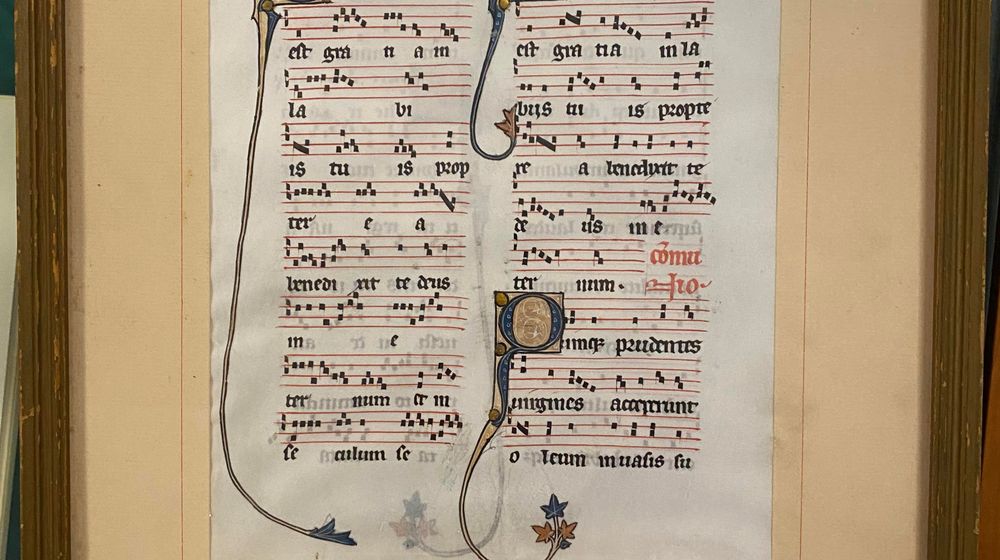 est gra ti am
la bi
is tu is prop
ter e a
benedi xit te deus
in e
ter num et in
se culum se
est gra tia in la
bijs tu is propte
re a benedixit te
de us in e
ter num.
cōmu
nio.
Quinqȝ prudentes
uirgines acceperunt
o leum in uasis su